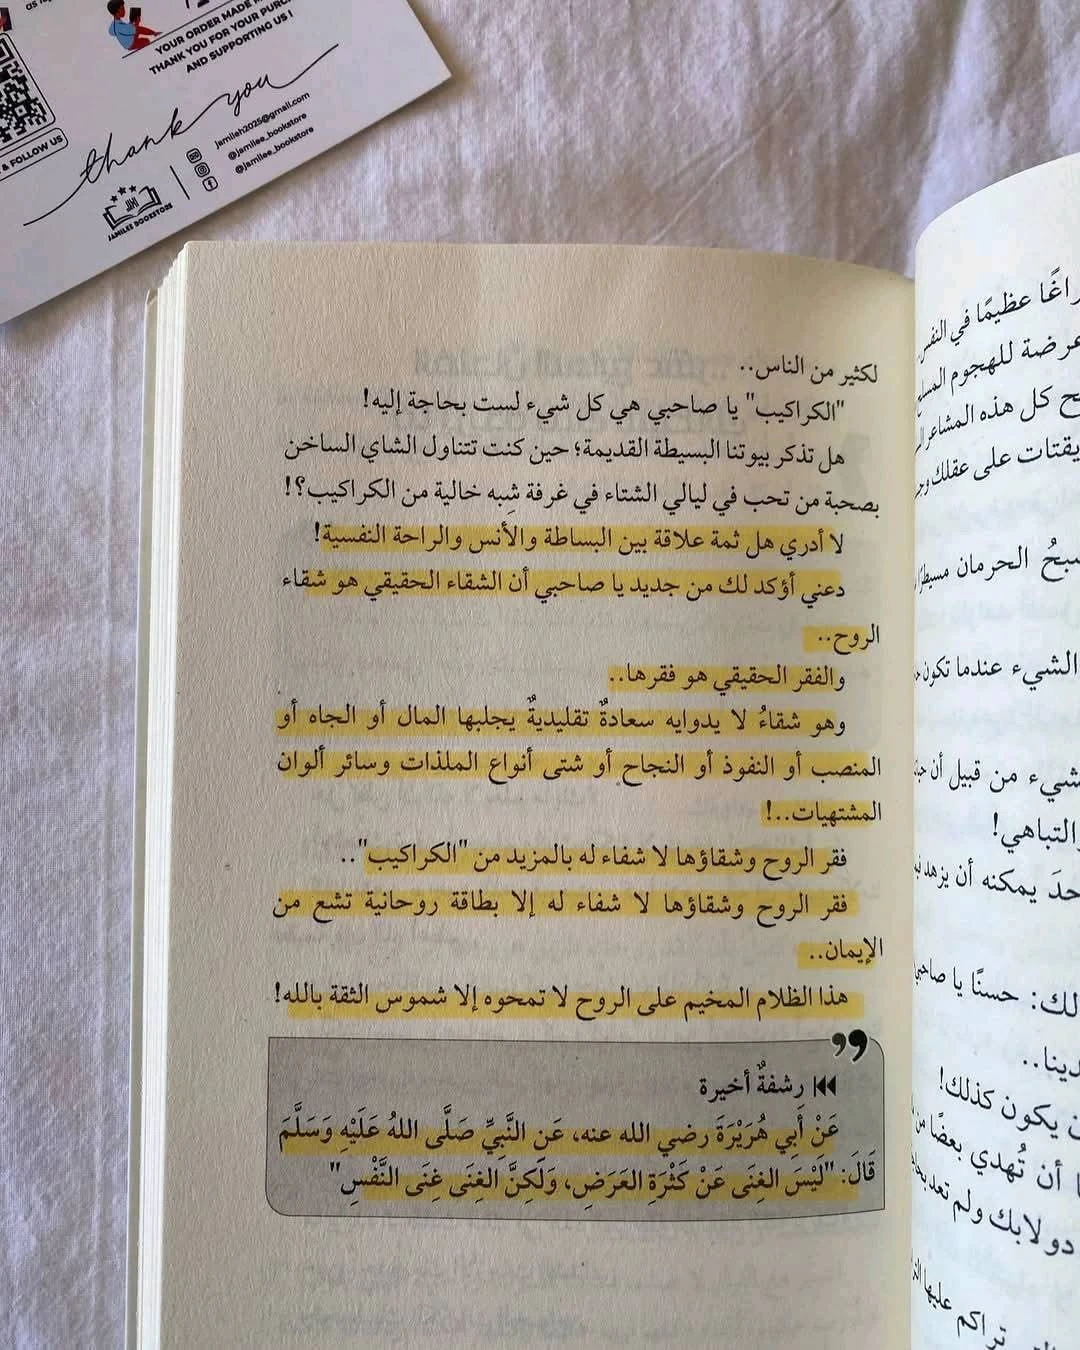 YOUR ORDER MADE
THANK YOU FOR YOUR PURC
AND SUPPORTING US !
thank you
& FOLLOW US
jamileh2025@gmail.com
@jamilee_bookstore
@jamilee_bookstore
JAMILEE BOOKSTORE
راغًا عظيمًا في النفس
عرضة للهجوم المسلح
ح كل هذه المشاعر
يقتات على عقلك
سبحُ الحرمان مسيطرًا
الشيء عندما تكون
شيء من قبيل أن
التباهي!
حدَ يمكنه أن يزهد
لك: حسنًا يا صاحبي
دينا..
ن يكون كذلك!
أن تُهدي بعضًا من
دولابك ولم تعد
تراكم عليها
لكثير من الناس..
"الكراكيب" يا صاحبي هي كل شيء لست بحاجة إليه!
هل تذكر بيوتنا البسيطة القديمة؛ حين كنت تتناول الشاي الساخن
بصحبة من تحب في ليالي الشتاء في غرفة شِبه خالية من الكراكيب؟!
لا أدري هل ثمة علاقة بين البساطة والأنس والراحة النفسية!
دعني أؤكد لك من جديد يا صاحبي أن الشقاء الحقيقي هو شقاء
الروح..
والفقر الحقيقي هو فقرها..
وهو شقاءُ لا يدوايه سعادةٌ تقليديةٌ يجلبها المال أو الجاه أو
المنصب أو النفوذ أو النجاح أو شتى أنواع الملذات وسائر ألوان
المشتهيات..!
فقر الروح وشقاؤها لا شفاء له بالمزيد من "الكراكيب"..
فقر الروح وشقاؤها لا شفاء له إلا بطاقة روحانية تشع من
الإيمان..
هذا الظلام المخيم على الروح لا تمحوه إلا شموس الثقة بالله!
رشفةٌ أخيرة
عَنْ أَبِي هُرَيْرَةَ رضي الله عنه، عَنِ النَّبِيِّ صَلَّى اللهُ عَلَيْهِ وَسَلَّمَ
قَالَ: "لَيْسَ الغِنَى عَنْ كَثْرَةِ العَرَضِ، وَلَكِنَّ الغِنَى غِنَى النَّفْسِ"